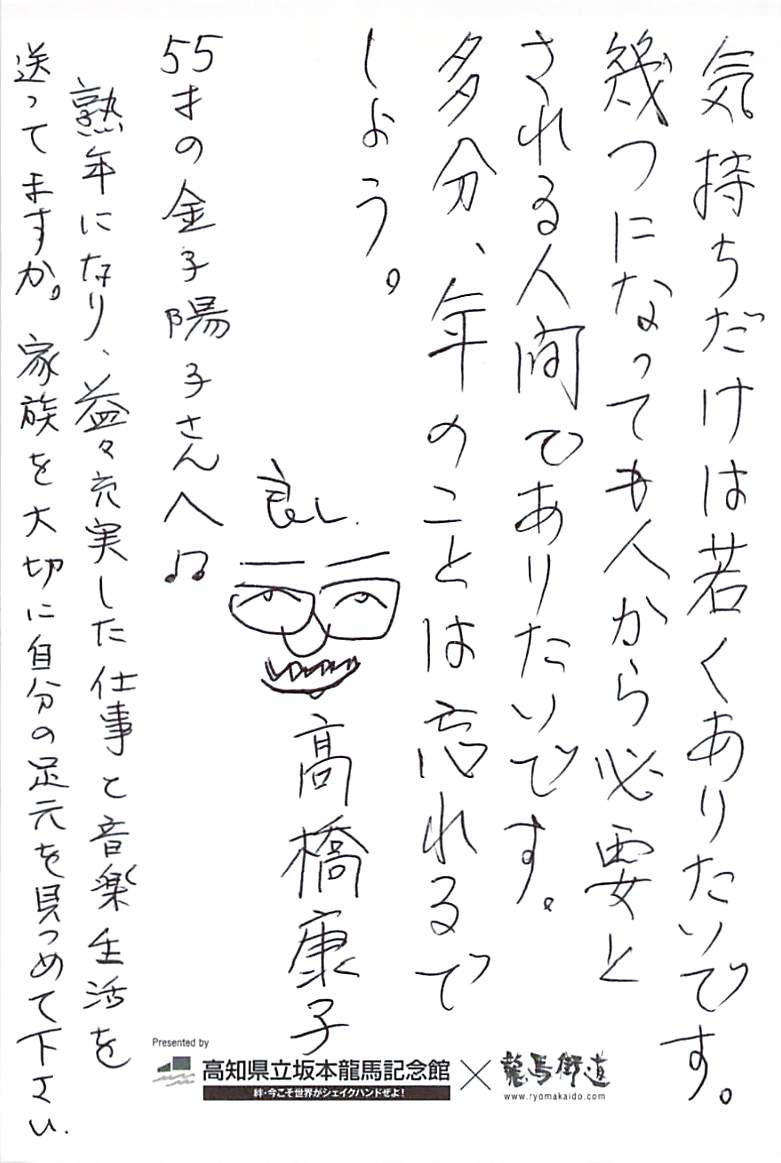 気持ちだけは若くありたいです。
幾つになっても人から必要と
される人間でありたいです。
多分、年のことは忘れるで
しょう。
良し.
高橋康子
55才の金子陽子さんへ♫
熟年になり、益々充実した仕事と音楽生活を
送ってますか。家族を大切に自分の足元を見つめて下さい.
Presented by
高知県立坂本龍馬記念館 × 龍馬街道
絆・今こそ世界がシェイクハンドせよ!
www.ryomakaido.com